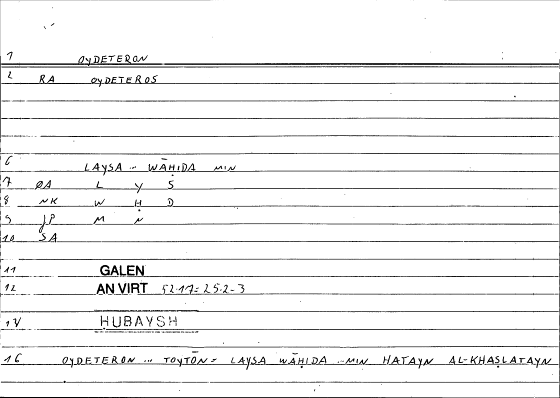 1 OYDETERON
2 RA OYDETEROS
6 LAYSA ... WĀḤIDA MIN
7 ØA L Y S
8 NK W Ḥ D
9 JP M N
10 SA
11 GALEN
12 AN VIRT 52.17 = 25.2-3
14 HUBAYSH
16 OYDETERON ... TOYTŌN = LAYSA WĀḤIDA ... MIN HATAYN AL-KHAṢLATAYN